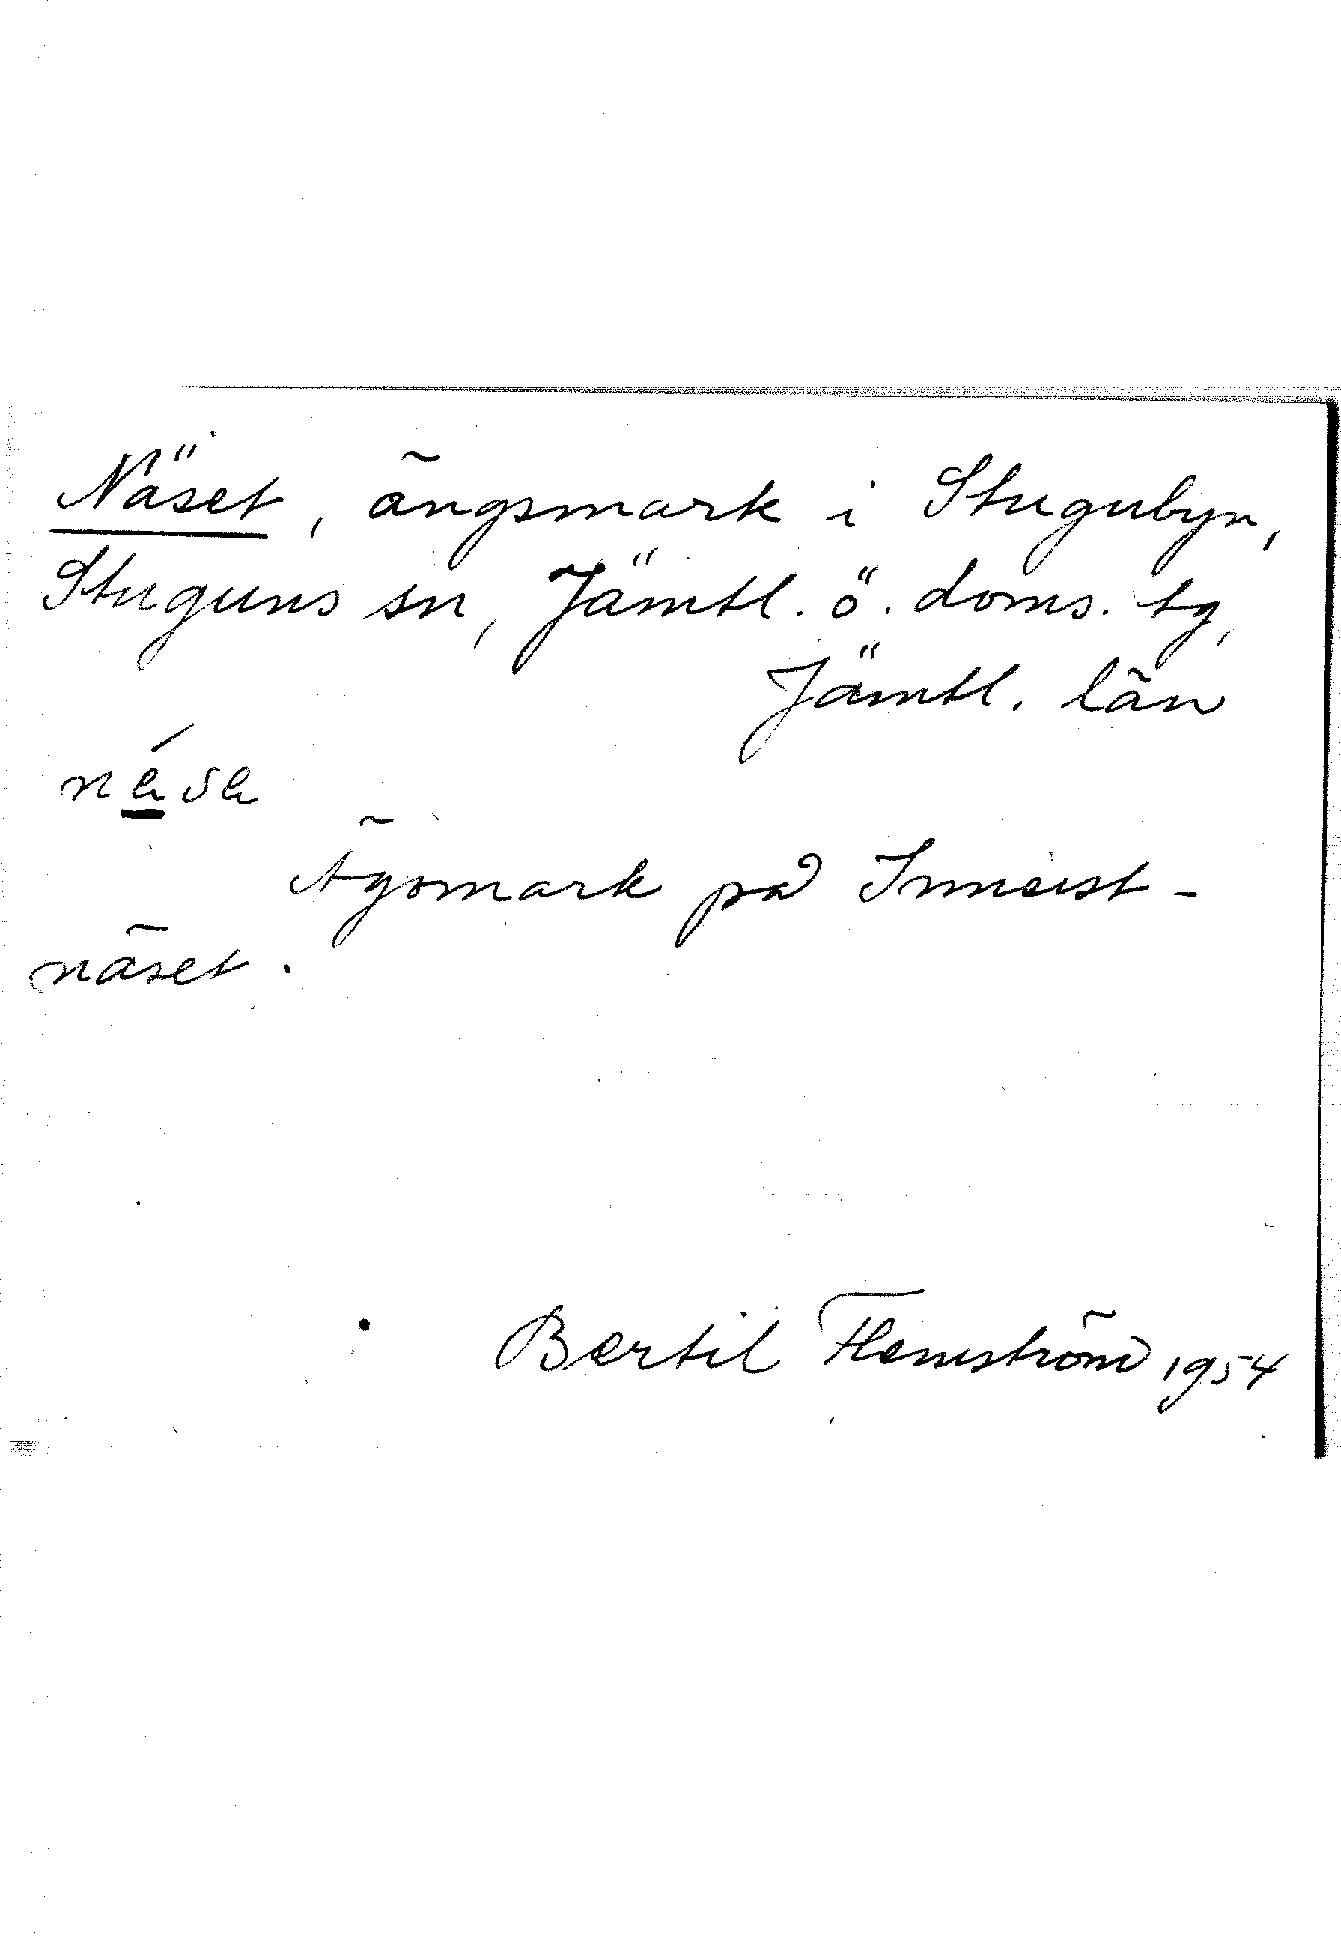 Näset, ängsmark i Stugubyn,
Stuguns sn, Jämtl. ö. doms. tg,
Jämtl. län
Ägomark på Inneist-
näset.
Bertil Flemström 1954